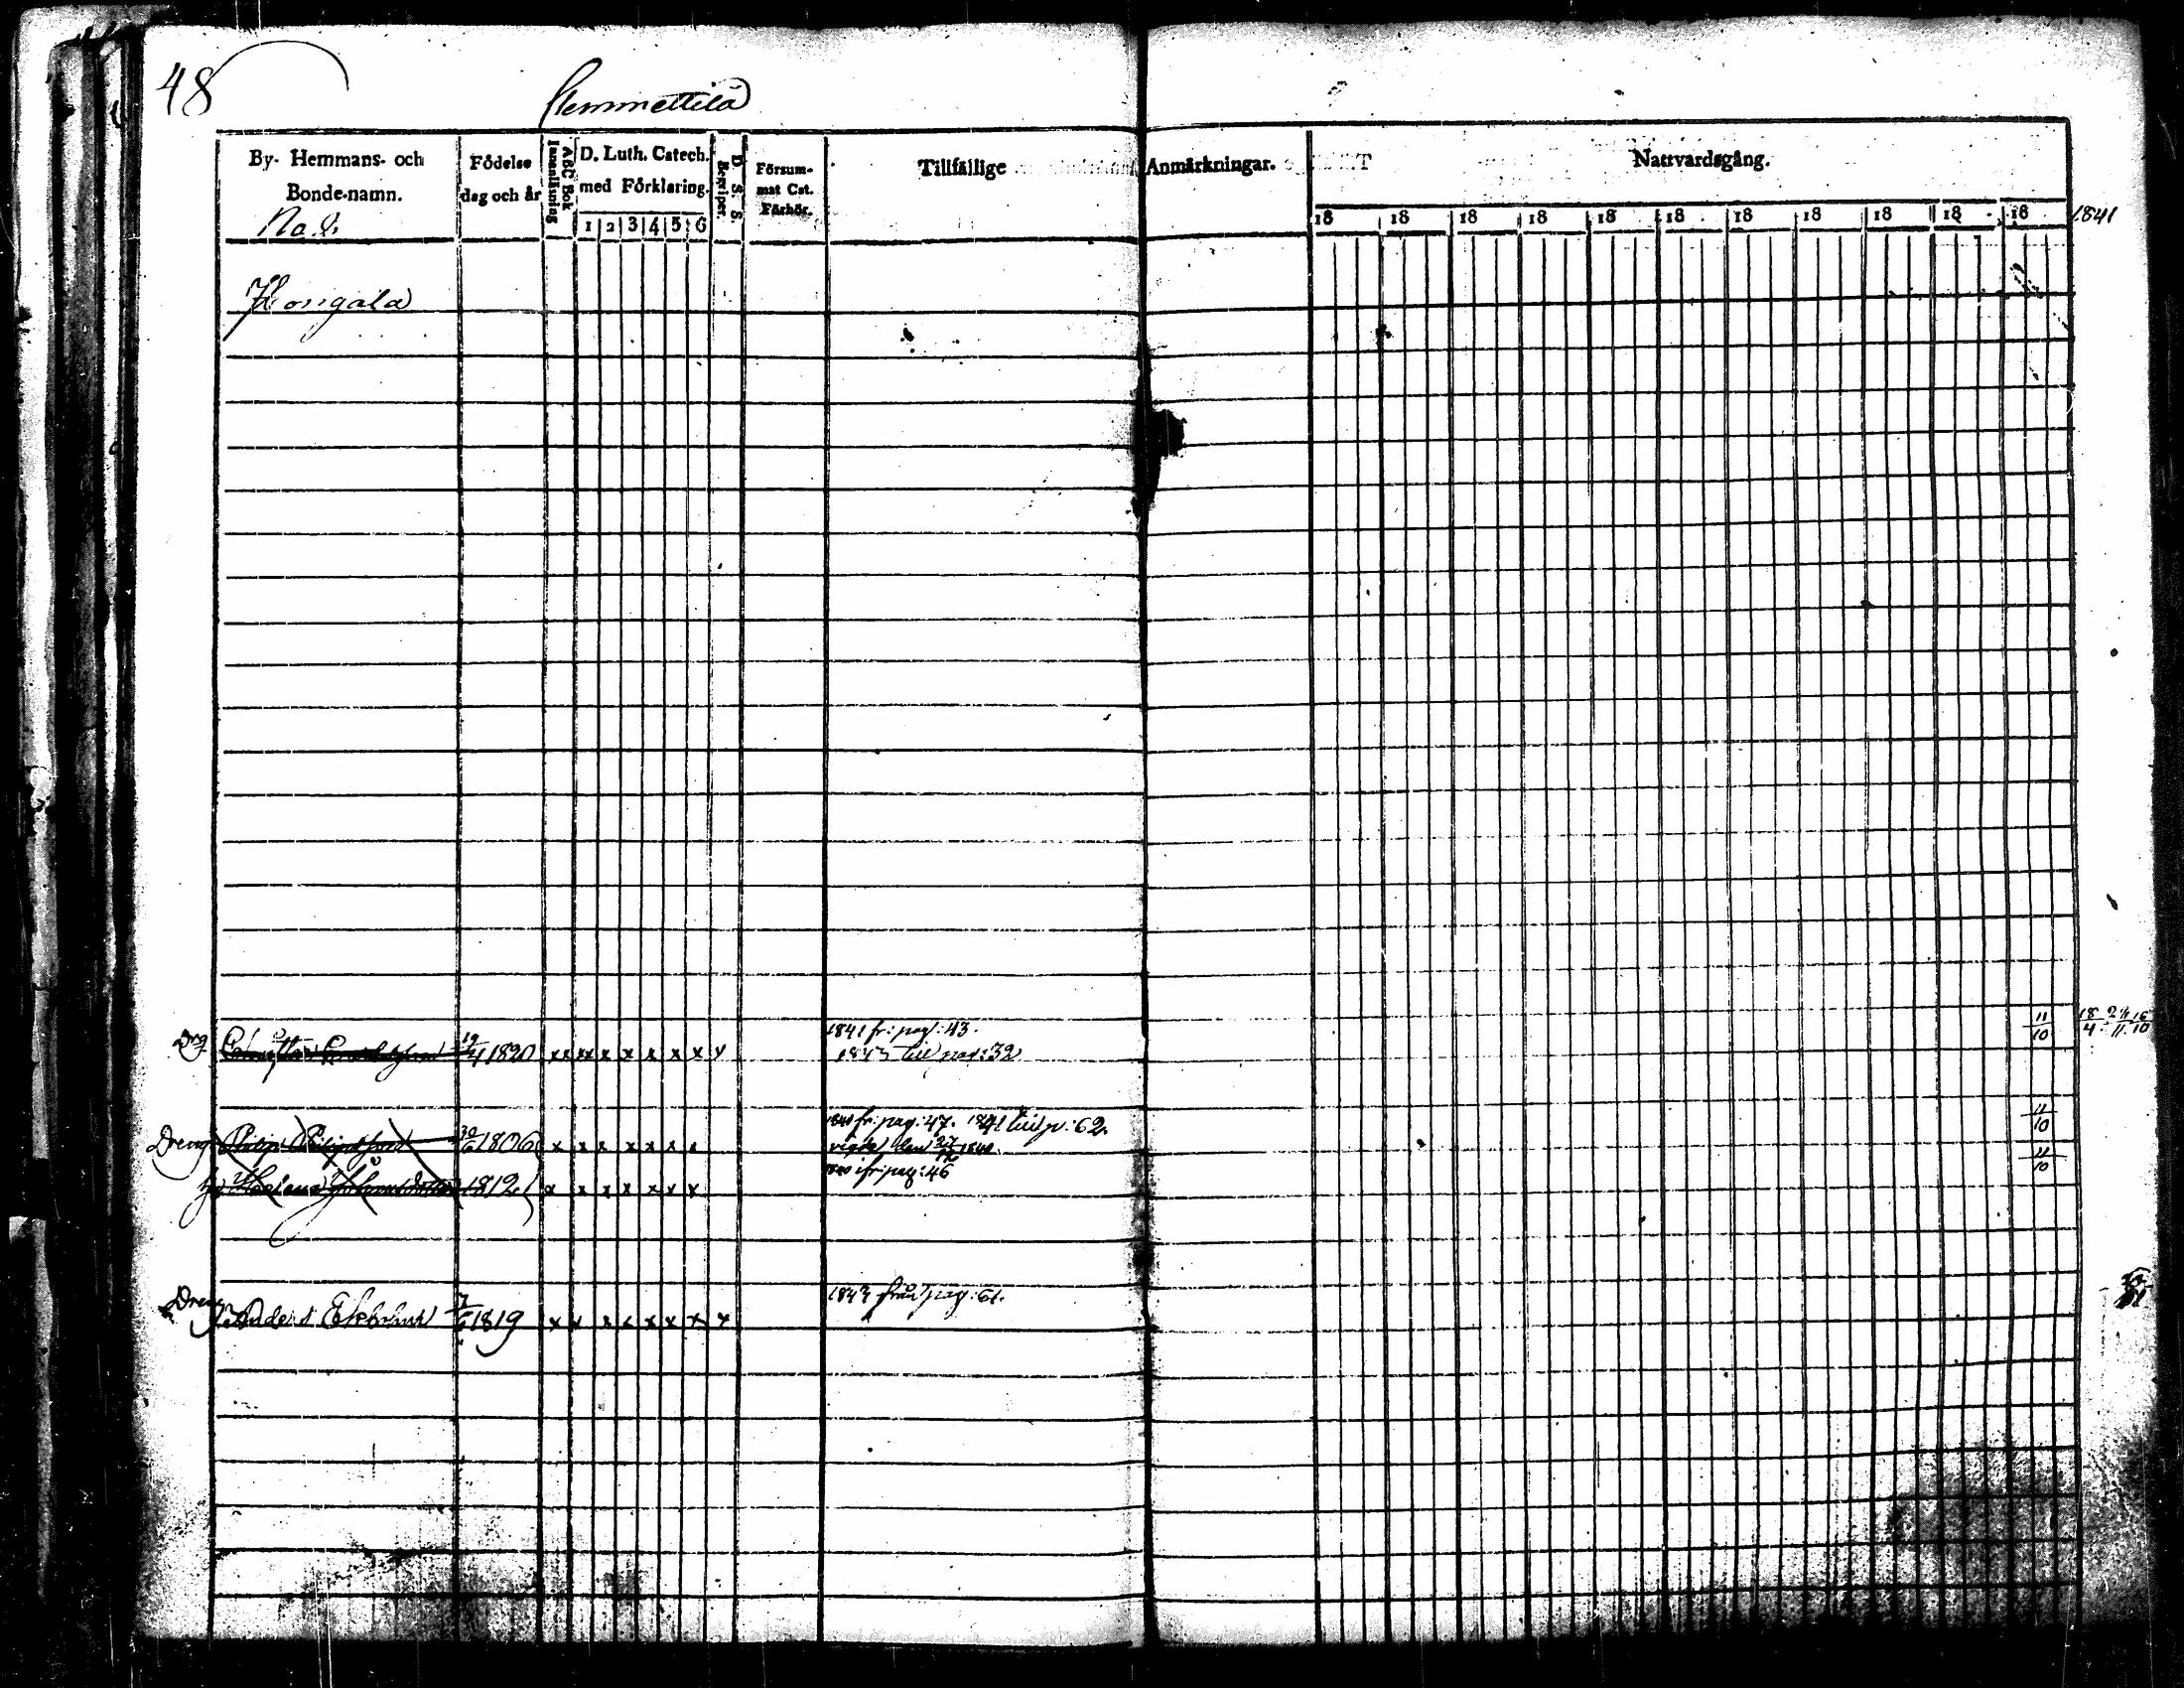 48
Hemmettilä
By- Hemmans- och Bonde-namn.
Födelse dag och år
ABC Bok Innanläsning
D. Luth. Catech. med Förklaring.
1 2 3 4 5 6
D. S. S. Begriper.
Försum- mat Cat. Förhör.
Tillfällige Anmärkningar.
Nattvardsgång.
18 18 18 18 18 18 18 18 18 18 18 1841
No. 8.
Hongala
Drg 19/4 1820 x x x x x x x x x
1841 fr: pag: 43.
1843 till pag: 32
11/10 18/4 11 16/10
Dreng Philip Philipsson 30/6 1806 x x x x x x x x
1840 fr: pag: 47. 1841 till p: 62.
vigde den 27/12 1840.
11/10
h: Johansdotter 1812 x x x x x x x
1840 fr: pag: 46
11/10
Dreng Anders Ekholm 7/6 1819 x x x x x x x x
1843 från pag: 61.